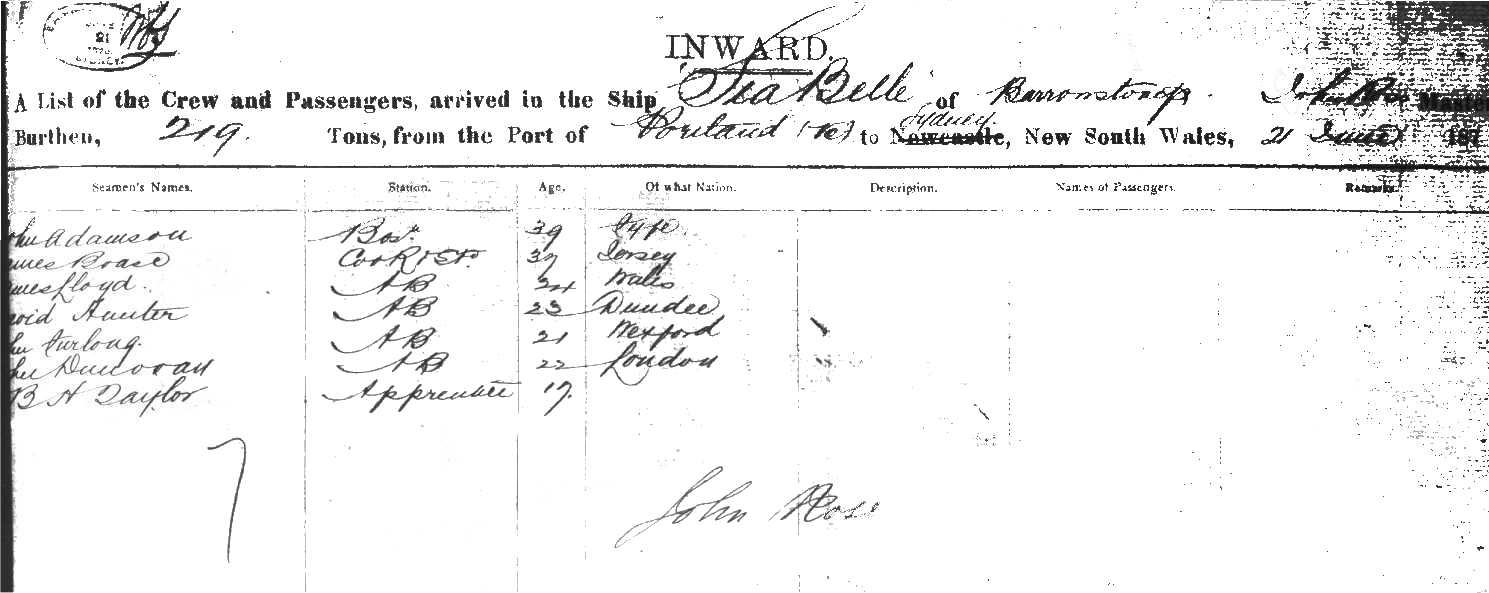 21
SYDNEY
INWARD.
A List of the Crew and Passengers, arrived in the Ship Sea Belle of John Rose Master
Burthen, 219. Tons, from the Port of Portland to Newcastle, Sydney. New South Wales, 21 June 187
Seamen's Names. Station. Age. Of what Nation. Description. Names of Passengers. Remarks.
ohn Adamson Bosn 39 Fyfe
ames Boase Cook & Std 37 Jersey
ames Lloyd. AB 24 Wales
avid Hunter AB 23 Dundee
ohn Furlong. AB 21 Wexford
ohn Dunovan AB 22 London
B H Taylor Apprentice 17.
7
John Rose